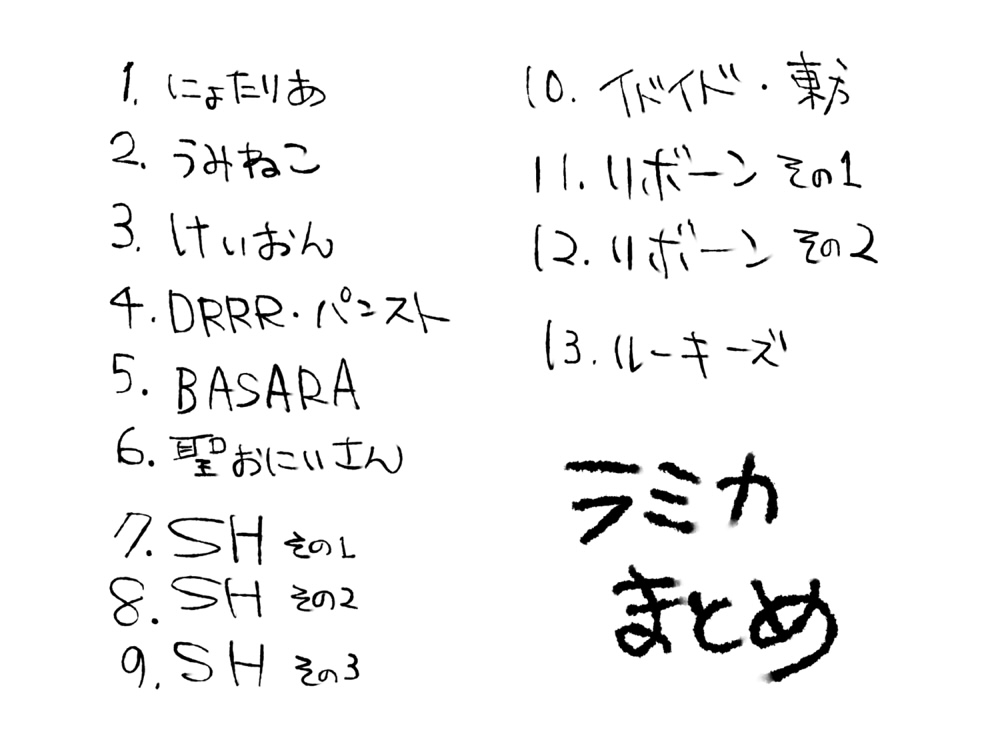 1. にょたりあ
2. うみねこ
3. けいおん
4. DRRR・パンスト
5. BASARA
6. 聖おにいさん
7. SH その1
8. SH その2
9. SH その3
10. イドイド・東方
11. リボーン その1
12. リボーン その2
13. ルーキーズ
ラミカ
まとめ